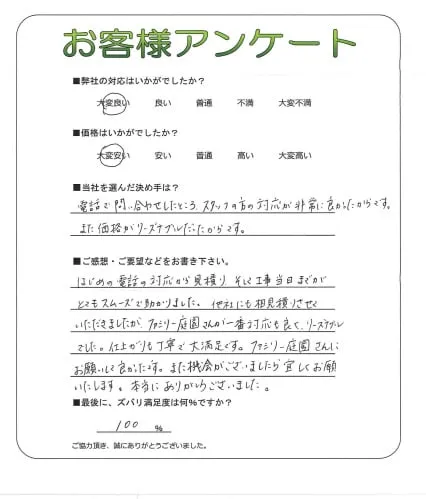 お客様アンケート
■弊社の対応はいかがでしたか？
大変良い 良い 普通 不満 大変不満
■価格はいかがでしたか？
大変安い 安い 普通 高い 大変高い
■当社を選んだ決め手は？
電話で問い合わせしたところ、スタッフの方の対応が非常に良かったからです。
また価格がリーズナブルだったからです。
■ご感想・ご要望などをお書き下さい。
はじめの電話の対応から見積り、そして工事当日までが
とてもスムーズで助かりました。他社にも相見積りさせて
いただきましたが、ファミリー庭園さんが一番対応も良く、リーズナブル
でした。仕上がりも丁寧で大満足です。ファミリー庭園さんに
お願いして良かったです。また機会がございましたら宜しくお願
いいたします。本当にありがとうございました。
■最後に、ズバリ満足度は何％ですか？
100 ％
ご協力頂き、誠にありがとうございました。